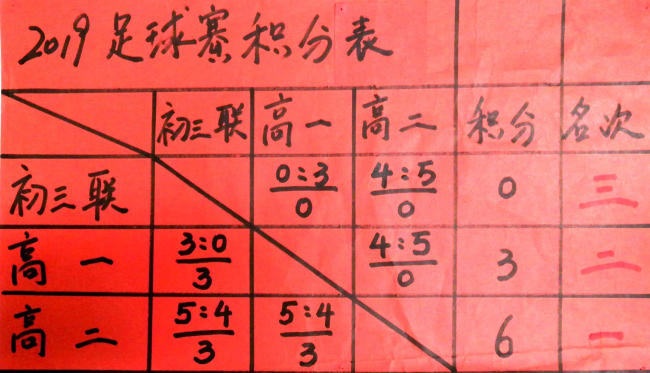 2019足球赛积分表
初三联 高一 高二 积分 名次
初三联 0:3/0 4:5/0 0 三
高一 3:0/3 4:5/0 3 二
高二 5:4/3 5:4/3 6 一